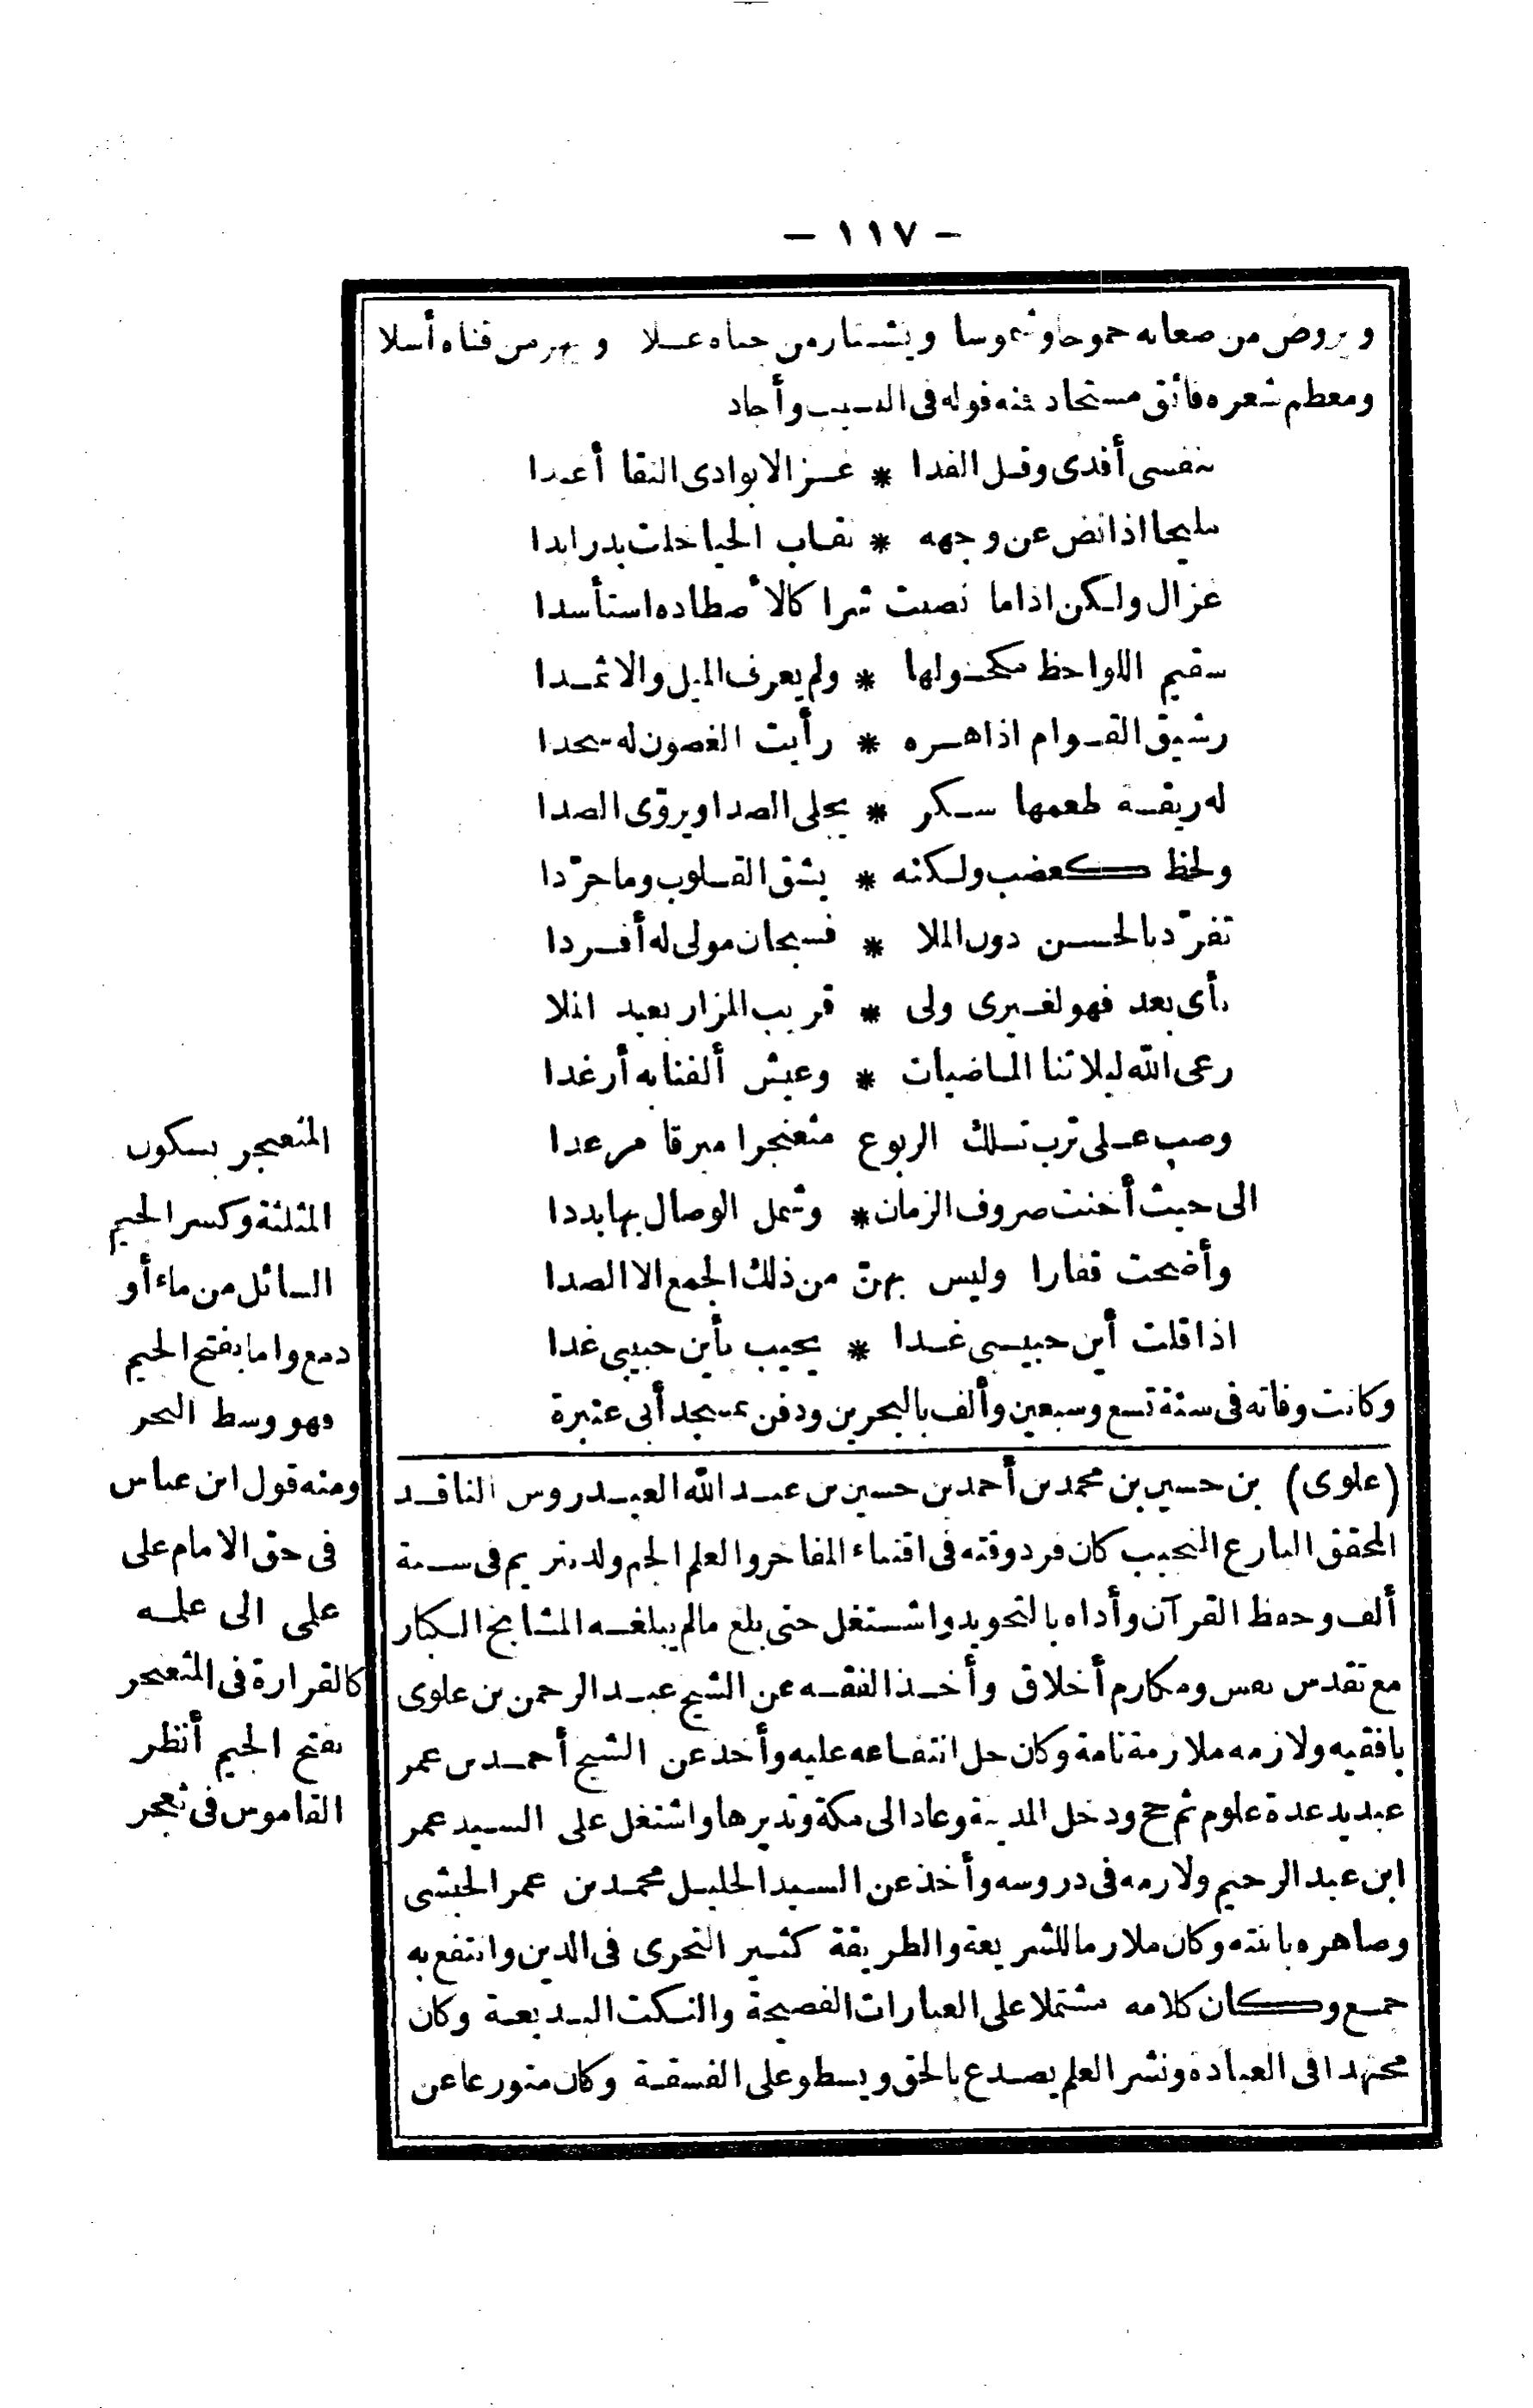 — ١١٧ —
ويروض من صعابه جموحا وشموسا ويشتار من جناه عسلا ويهز من قناه أسلا
ومعظم شعره فائق مستجاد فمنه قوله فى النسيب وأجاد
بنفسى أفدى وقل الفدا * غزالا بوادى النقا أغيدا
مليحا اذا نض عن وجهه * نقاب الحيا خلت بدرا بدا
غزال ولكن اذا ما نصبت شرا كالأصطاده استأسدا
سقيم اللواحظ مكحولها * ولم يعرف الميل والاثمدا
رشيق القوام اذا هزه * رأيت الغصون له سجدا
له ريقة طعمها سكر * يجلى الصدا ويروّى الصدا
ولحظ كعضب ولكنه * يشق القلوب وما جرّدا
تفرّد بالحسن دون الملا * فسبحان مولى له أفردا
بأى بعد فهو لغيرى ولى * قريب المزار بعيد
رعى الله ليلاتنا الماضيات * وعيش ألفنا به أرغدا
وصب على ترب تلك الربوع مثعنجرا مبرقا مرعدا
الى حيث أخنت صروف الزمان * وشمل الوصال بها بددا
وأضحت قفارا وليس بهنّ من ذلك الجمع الا الصدا
اذا قلت أين حبيبى غدا * يجيب بأين حبيبى غدا
وكانت وفاته فى سنة تسع وسبعين وألف بالبحرين ودفن بمسجد أبى عنبرة
(علوى) بن حسين بن محمد بن أحمد بن حسين بن عبد الله العيدروس الناقد
المحقق البارع النجيب كان فرد وقته فى اقتناء المفاخر والعلم الجم ولد بتريم فى سنة
ألف وحفظ القرآن وأداه بالتجويد واشتغل حتى بلغ مالم يبلغه المشايخ الكبار
مع تقدس نفس ومكارم أخلاق وأخذ الفقه عن الشيخ عبد الرحمن بن علوى
بافقيه ولازمه ملازمة تامة وكان جل انتفاعه عليه وأخذ عن الشيخ أحمد بن عمر
عبديد عدة علوم ثم حج ودخل المدينة وعاد الى مكة وتديرها واشتغل على السيد عمر
ابن عبد الرحيم ولازمه فى دروسه وأخذ عن السيد الجليل محمد بن عمر الحبشى
وصاهره بابنته وكان ملازما للشريعة والطريقة كثير التحرى فى الدين وانتفع به
جمع وكان كلامه مشتملا على العبارات الفصيحة والنكت البديعة وكان
مجتهدا فى العبادة ونشر العلم يصدع بالحق ويسطو على الفسقة وكان متورعا عن
المثعنجر بسكون
المثلثة وكسر الجيم
السائل من ماء أو
دمع واما بفتح الجيم
فهو وسط البحر
ومنه قول ابن عباس
فى حق الامام على
علمى الى علمه
كالقرارة فى المثعنجر
بفتح الجيم أنظر
القاموس فى ثعجر